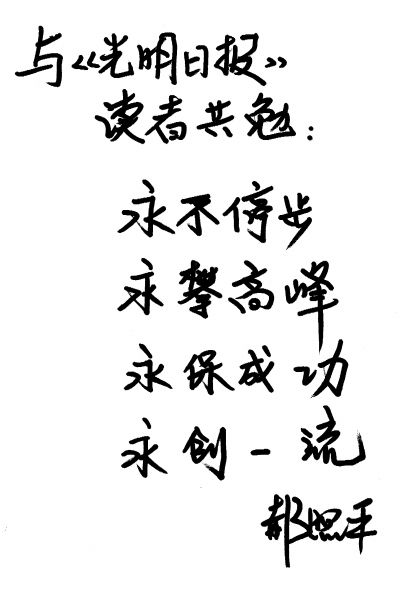 与《光明日报》
读者共勉：
永不停步
永攀高峰
永保成功
永创一流
郝照平